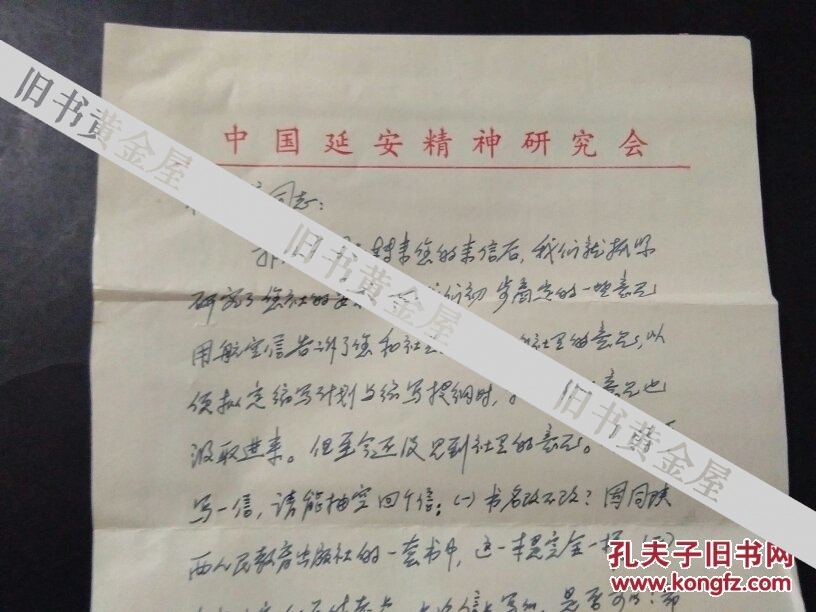 中国延安精神研究会
同志：
转来您的来信后，我们就抓紧
研究了您社的 们初步商定的一些意见
用航空信告诉了您和社 社里的意见，以
便拟定编写计划与编写提纲时， 意见也
汲取进来。但至今还没见到社里的意见。
写一信，请能抽空回个信：（一）书名改不改？因同陕
西人民教育出版社的一套书中，这一本完全一样
是否可以？
旧书黄金屋
旧书黄金屋
旧书黄金屋
旧书黄金屋
孔夫子旧书网
www.kongfz.com